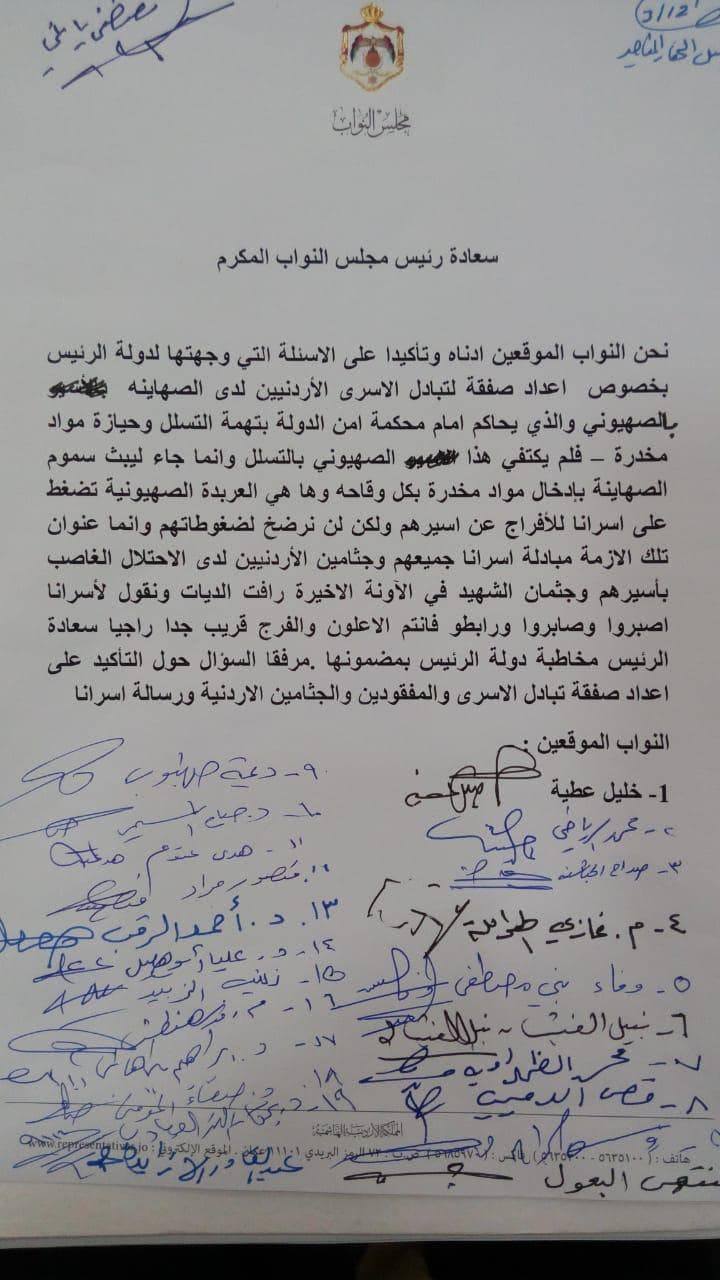 مصطفى ياغي
3/12
مجلس النواب
سعادة رئيس مجلس النواب المكرم
نحن النواب الموقعين ادناه وتأكيدا على الاسئلة التي وجهتها لدولة الرئيس
بخصوص اعداد صفقة لتبادل الاسرى الأردنيين لدى الصهاينه
بالصهيوني والذي يحاكم امام محكمة امن الدولة بتهمة التسلل وحيازة مواد
مخدرة – فلم يكتفي هذا الصهيوني بالتسلل وانما جاء ليبث سموم
الصهاينة بإدخال مواد مخدرة بكل وقاحه وها هي العربدة الصهيونية تضغط
على اسرانا للأفراج عن اسيرهم ولكن لن نرضخ لضغوطاتهم وانما عنوان
تلك الازمة مبادلة اسرانا جميعهم وجثامين الأردنيين لدى الاحتلال الغاصب
بأسيرهم وجثمان الشهيد في الآونة الاخيرة رافت الديات ونقول لأسرانا
اصبروا وصابروا ورابطو فانتم الاعلون والفرج قريب جدا راجيا سعادة
الرئيس مخاطبة دولة الرئيس بمضمونها .مرفقا السؤال حول التأكيد على
اعداد صفقة تبادل الاسرى والمفقودين والجثامين الاردنية ورسالة اسرانا
النواب الموقعين :
1- خليل عطية
٢- محمد الرياطي
٣- صداح الحباشنه
٤- م. غازي الهواملة
٥- وفاء بني مصطفى
٦- نبيل الغيشان
٧-
٨- قصي الدميسي
٩- ديمة طهبوب
١٠- د.
١١- هدى عتوم
١٢- منصور مراد
١٣- د. أحمد الرقب
١٤- د. عليا أبو هليل
١٥- زينب الزبيد
١٦- م.
١٧- د. ابراهيم
١٨-
١٩- د.
المملكة الأردنية الهاشمية
هاتف : ( ٥٦٣٥١٠٠ - ) فاكس : ( ٥٦٨٥٩٧٠ ) ص.ب : ٧٢ الرمز البريدي ١١١٠١ عمان . الموقع الإلكتروني : www.representatives.jo